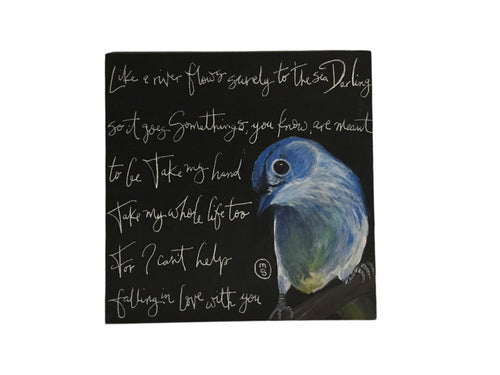 Like a river flows surely to the sea Darling
so it goes Somethings, you know, are meant
to be Take my hand
Take my whole life too
For I can't help
falling in love with you